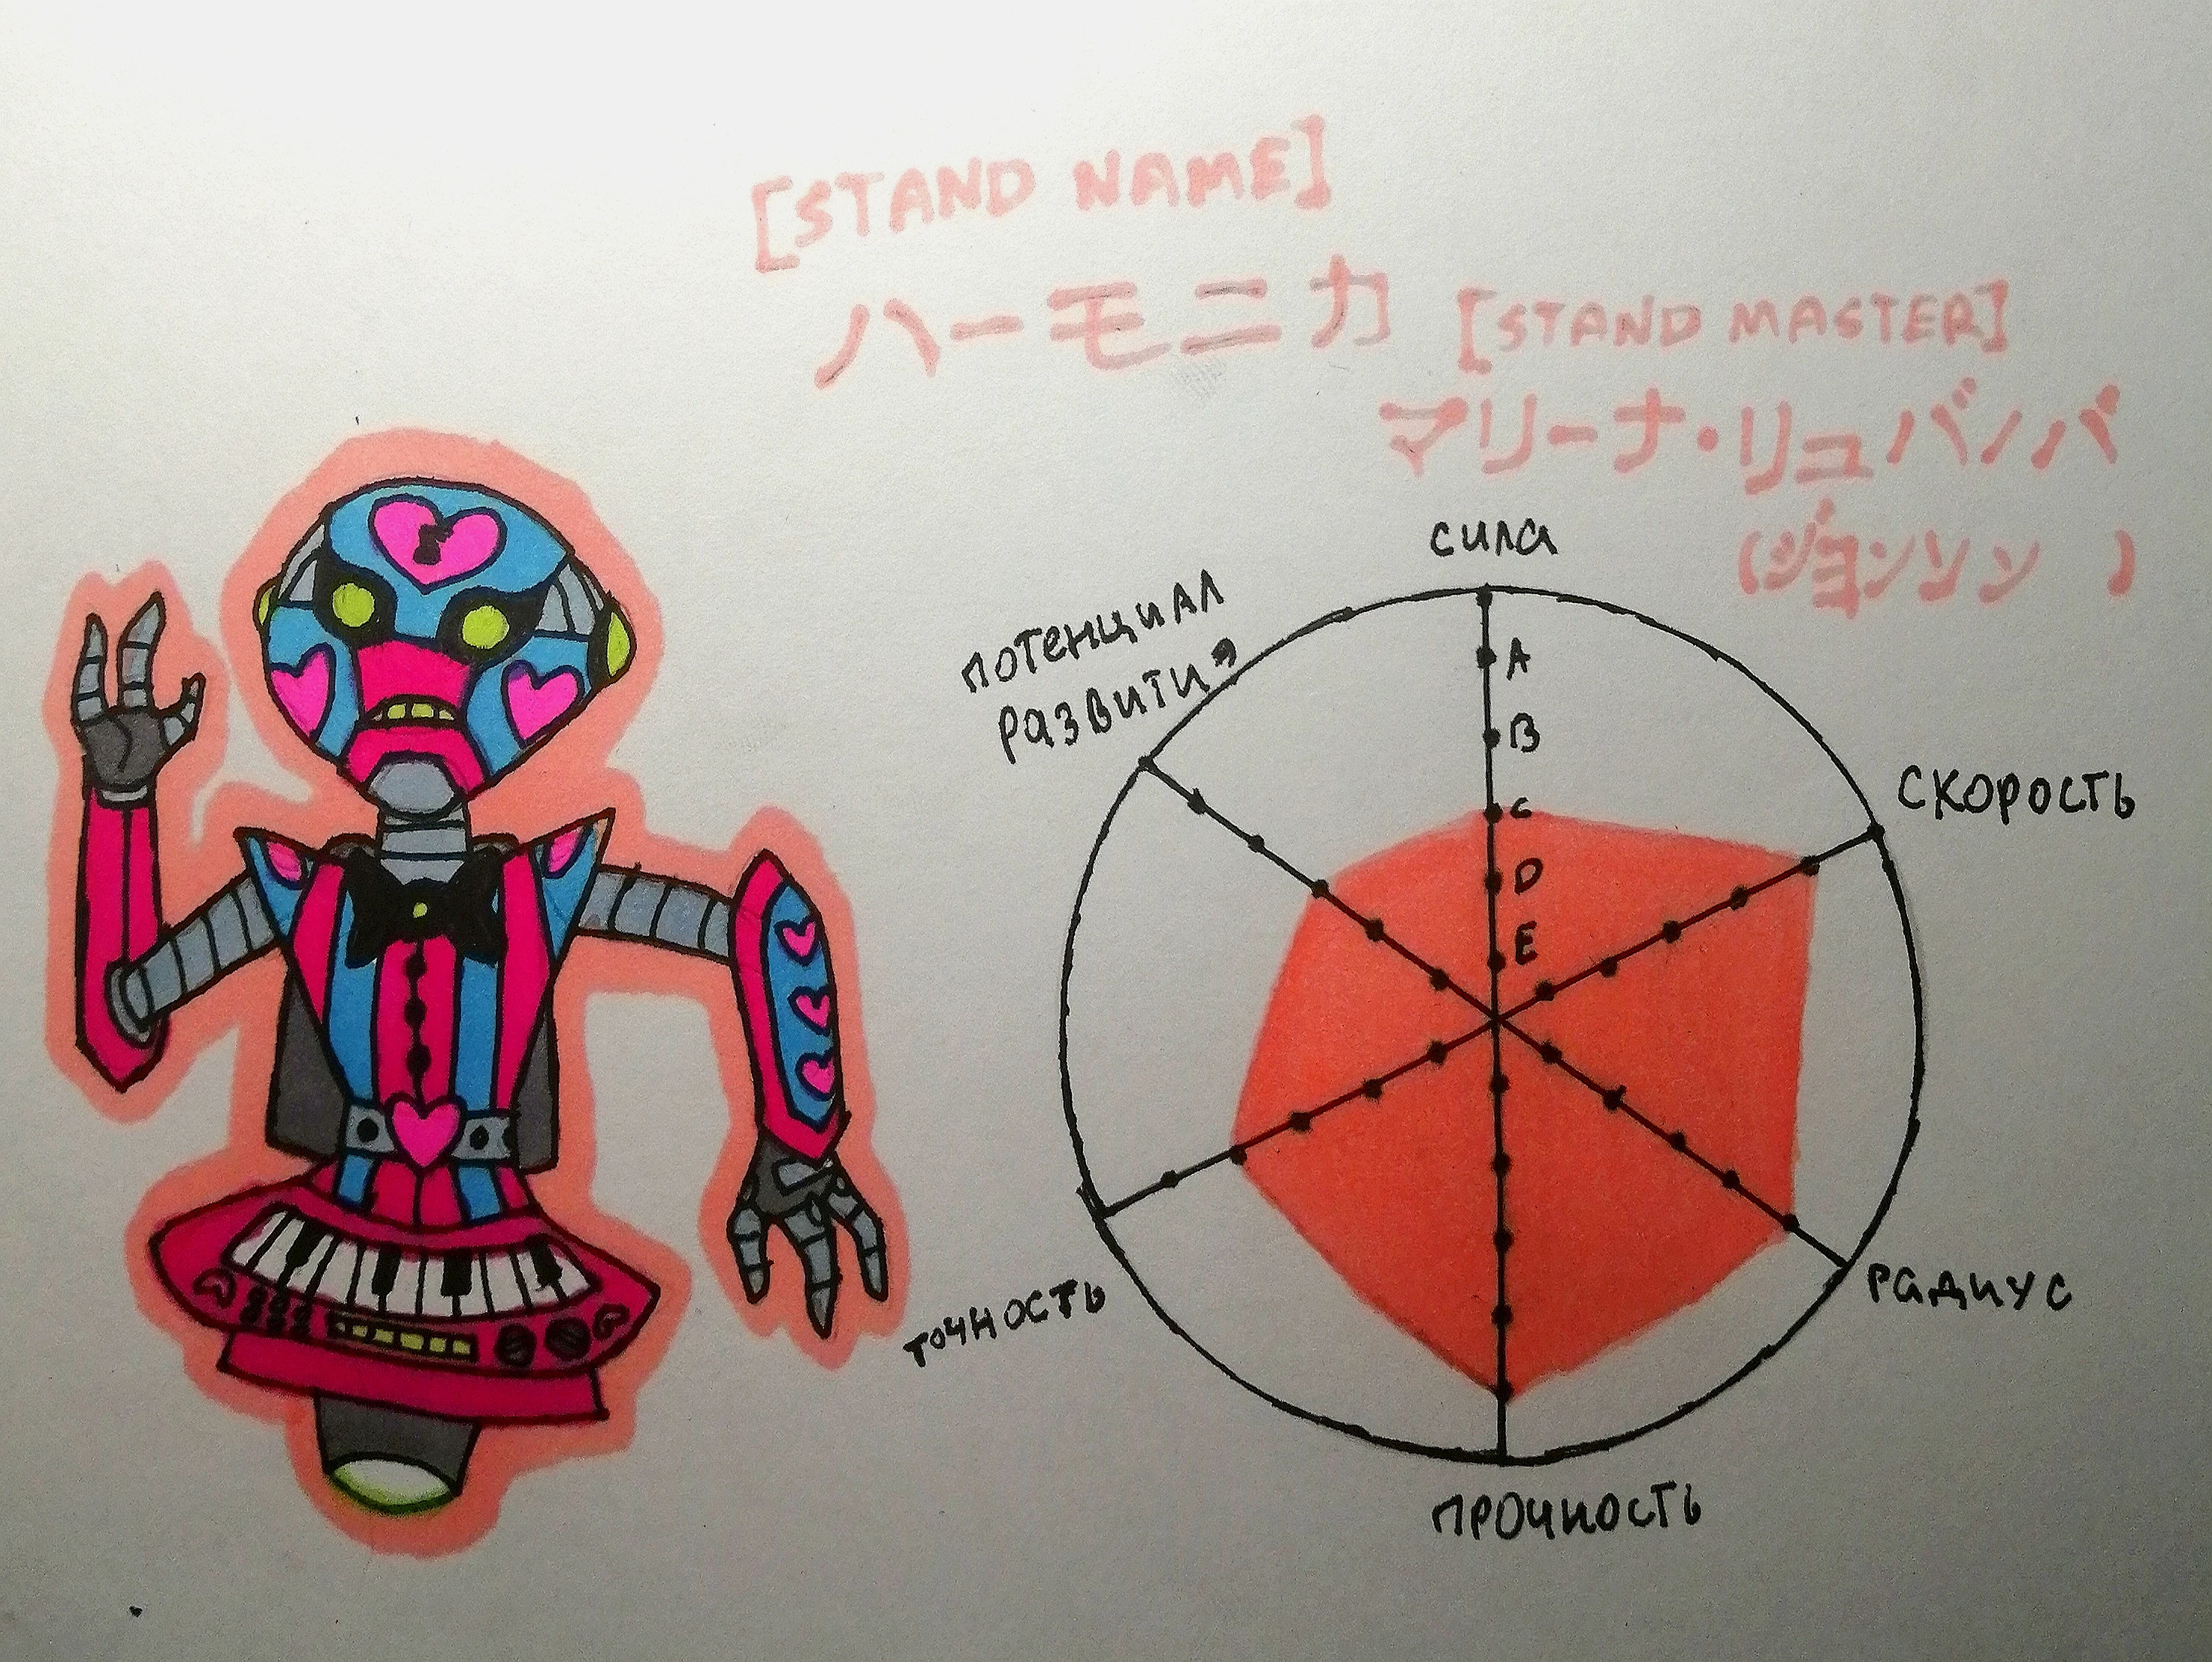 [STAND NAME]
ハーモニカ
[STAND MASTER]
マリーナ・リュバノバ
(ジョンソン)
сила
A
B
C
D
E
скорость
потенциал
развития
точность
радиус
прочность